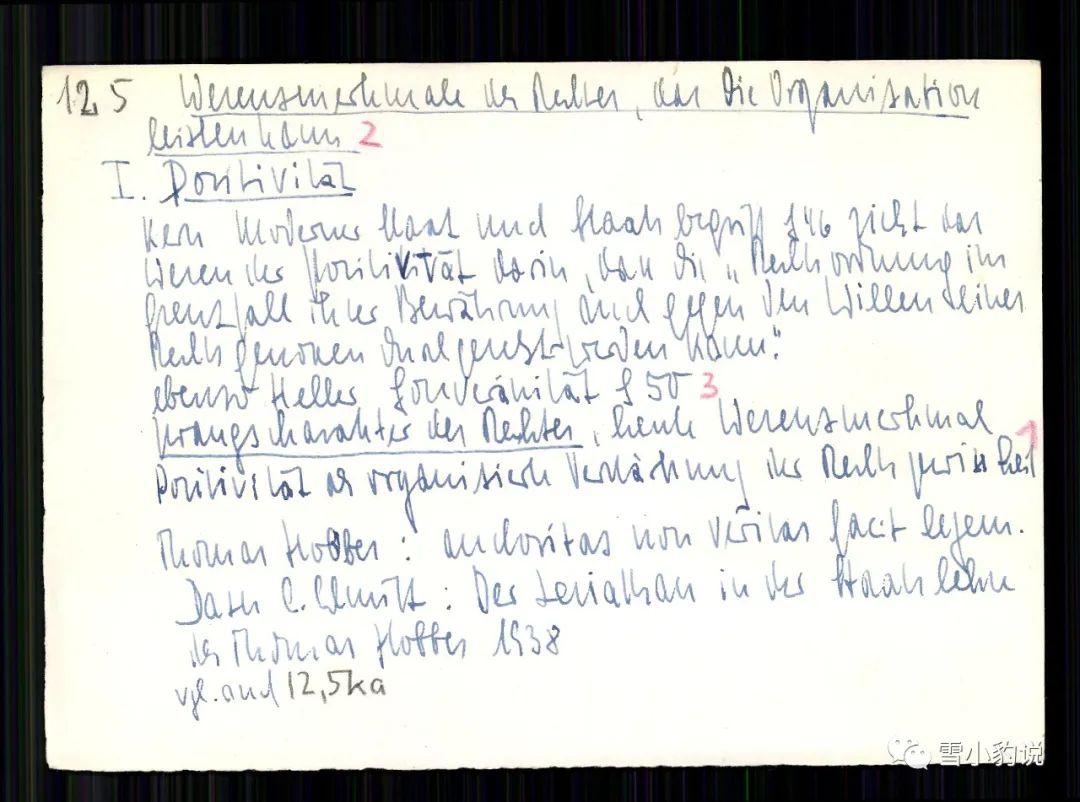 12,5 Wesensmerkmale des Rechtes, das die Organisation
leisten kann 2
I. Positivität
Kern Moderner Staat und Staatsbegriff S 46 sieht das
Wesen der Positivität darin, dass die "Rechtsordnung im
Grenzfall ihrer Bewährung auch gegen den Willen eines
Rechtsgenossen durchgesetzt werden kann."
ebenso Heller Souveränität S 50 3
Zwangscharakter des Rechtes, heute Wesensmerkmal 1
Positivität als organisierte der Rechtsgewissheit
Thomas Hobbes: auctoritas non veritas facit legem.
Dazu C. Schmitt: Der Leviathan in der Staatslehre
des Thomas Hobbes 1938
vgl. auch 12,5ka
雪小豹说